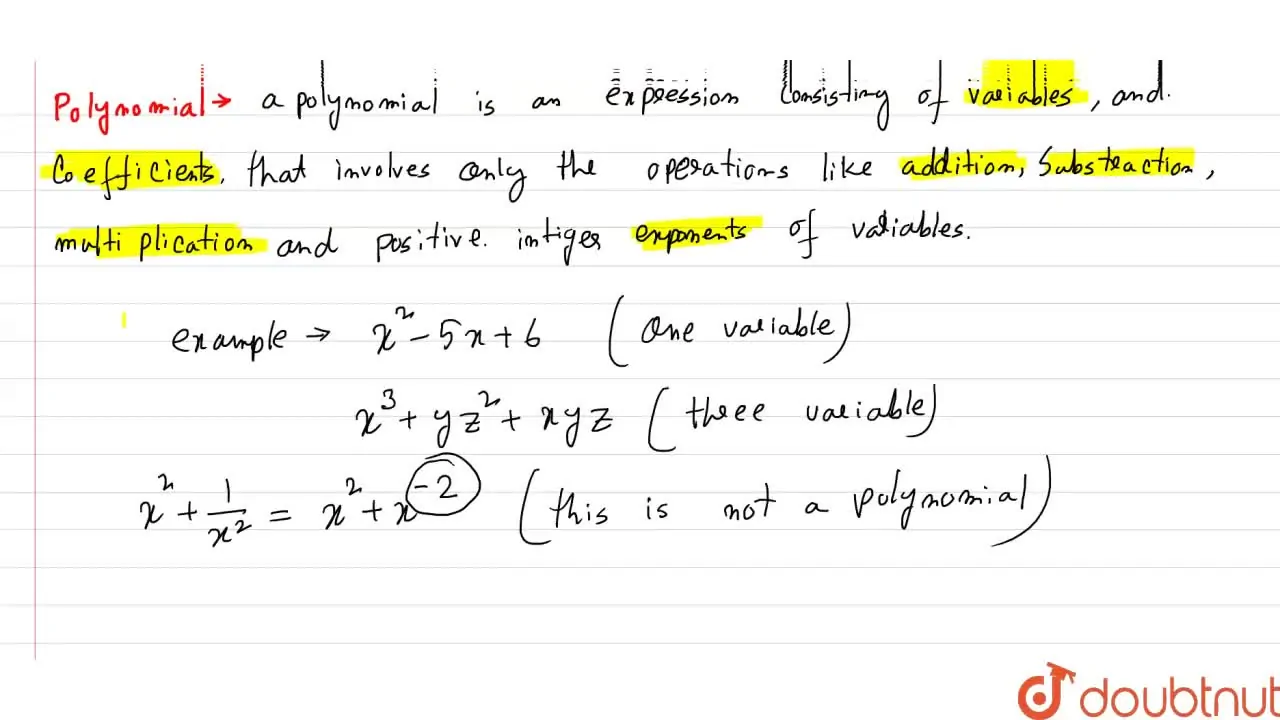 Polynomial → a polynomial is an expession Consisting of variables, and.
Coefficients, that involves only the operations like addition, Substraction,
multiplication and positive. intiger exponents of variables.
example → x² - 5x + 6 (One variable)
x³ + yz² + xyz (three variable)
x² + 1/x² = x² + x⁻² (this is not a polynomial)
doubtnut